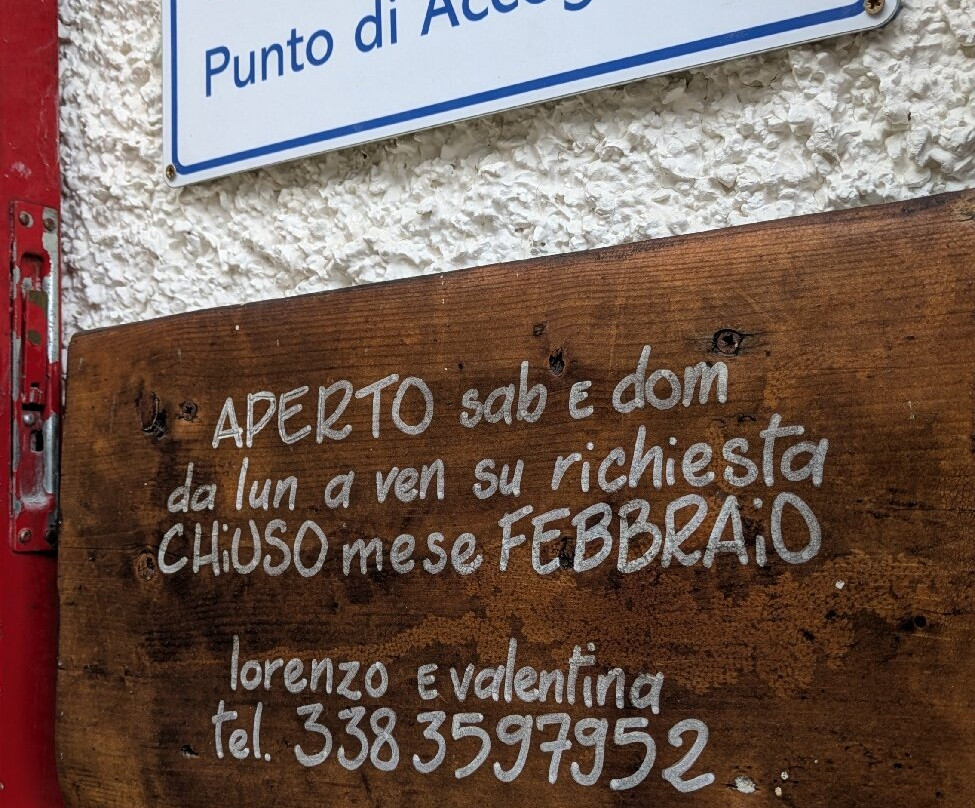 Punto di
APERTO sab E dom
da lun a ven su richiesta
CHiUSO mese FEBBRAiO
lorenzo E valentina
tel. 338 3597952